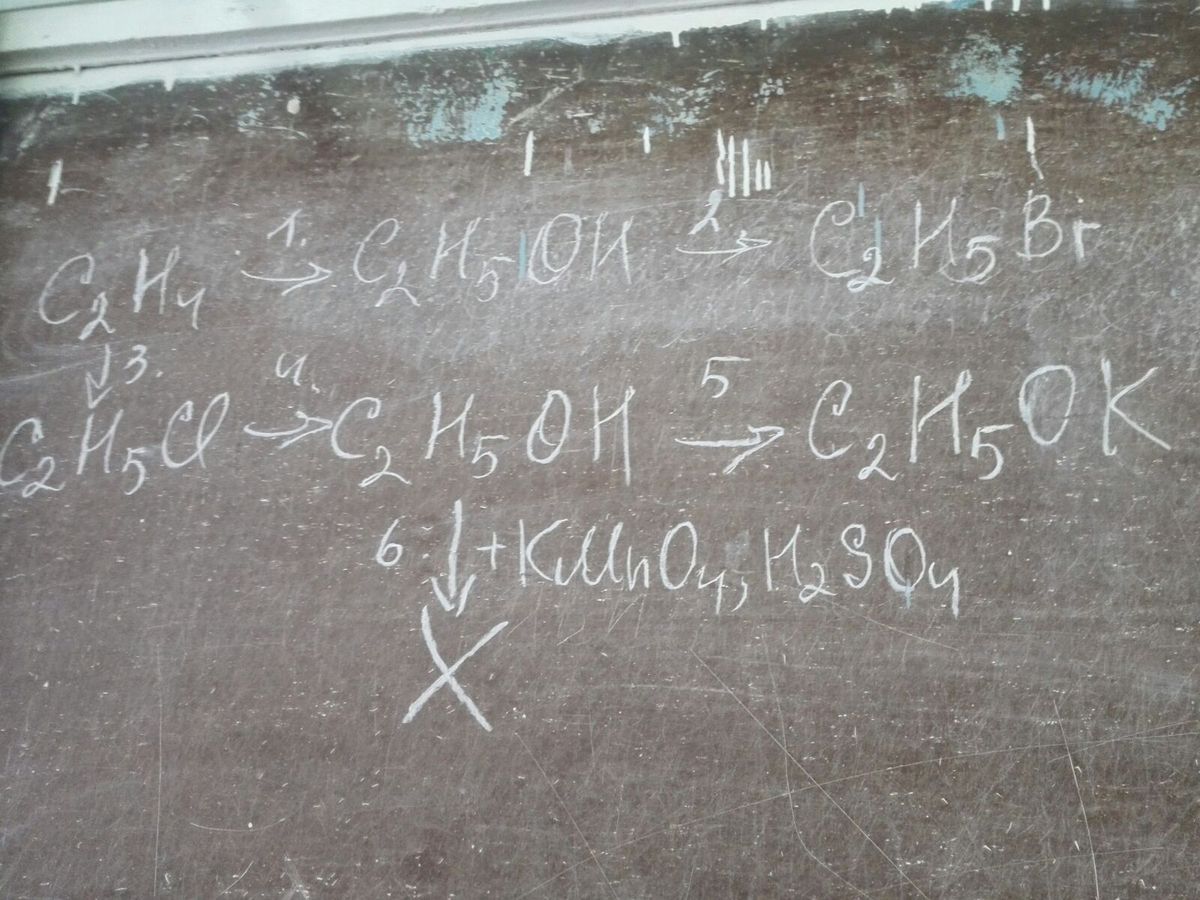 C₂H₄ 1. → C₂H₅OH 2 → C₂H₅Br
↓ 3.
C₂H₅Cl 4. → C₂H₅OH 5 → C₂H₅OK
6. ↓ +KMnO₄, H₂SO₄
X